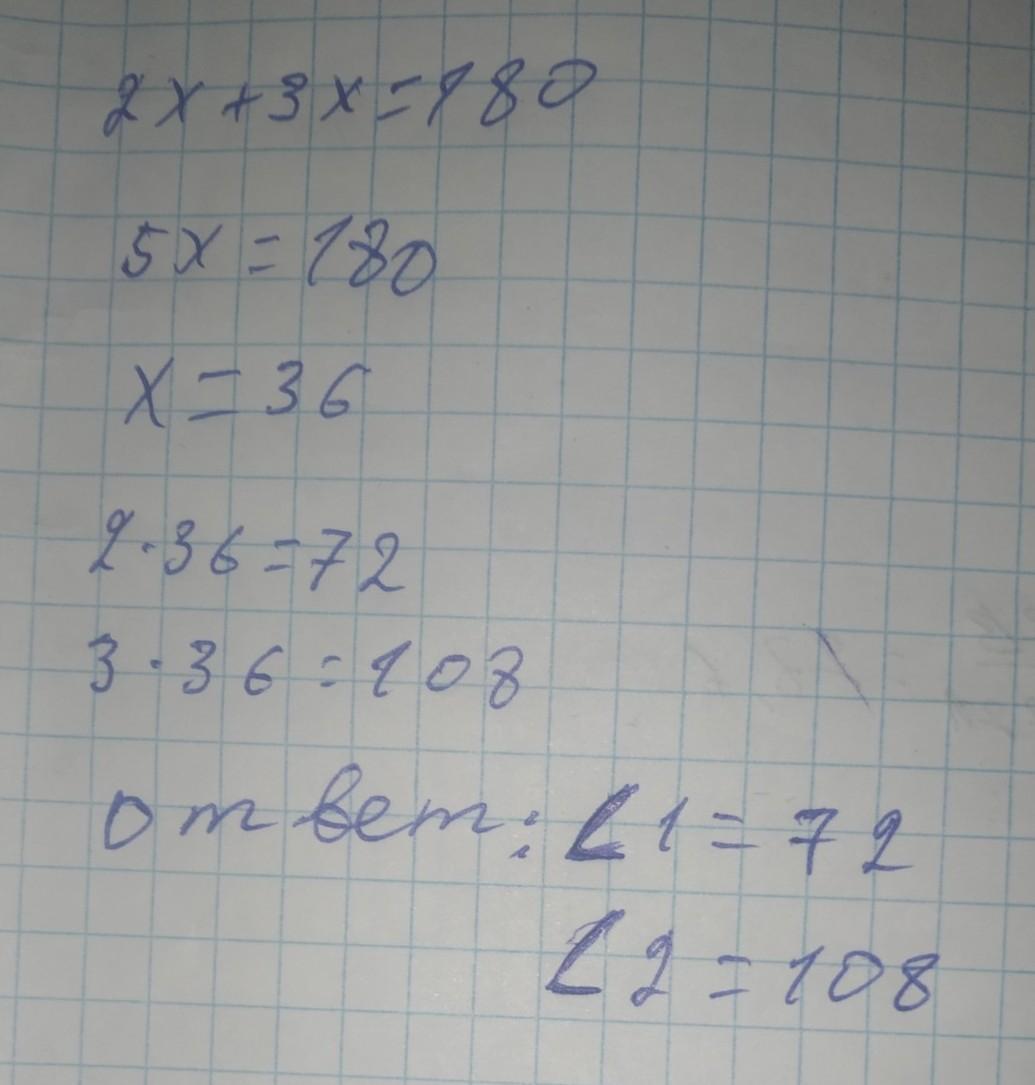 2x+3x=180
5x=180
x=36
2·36=72
3·36=108
ответ: ∠1=72
∠2=108